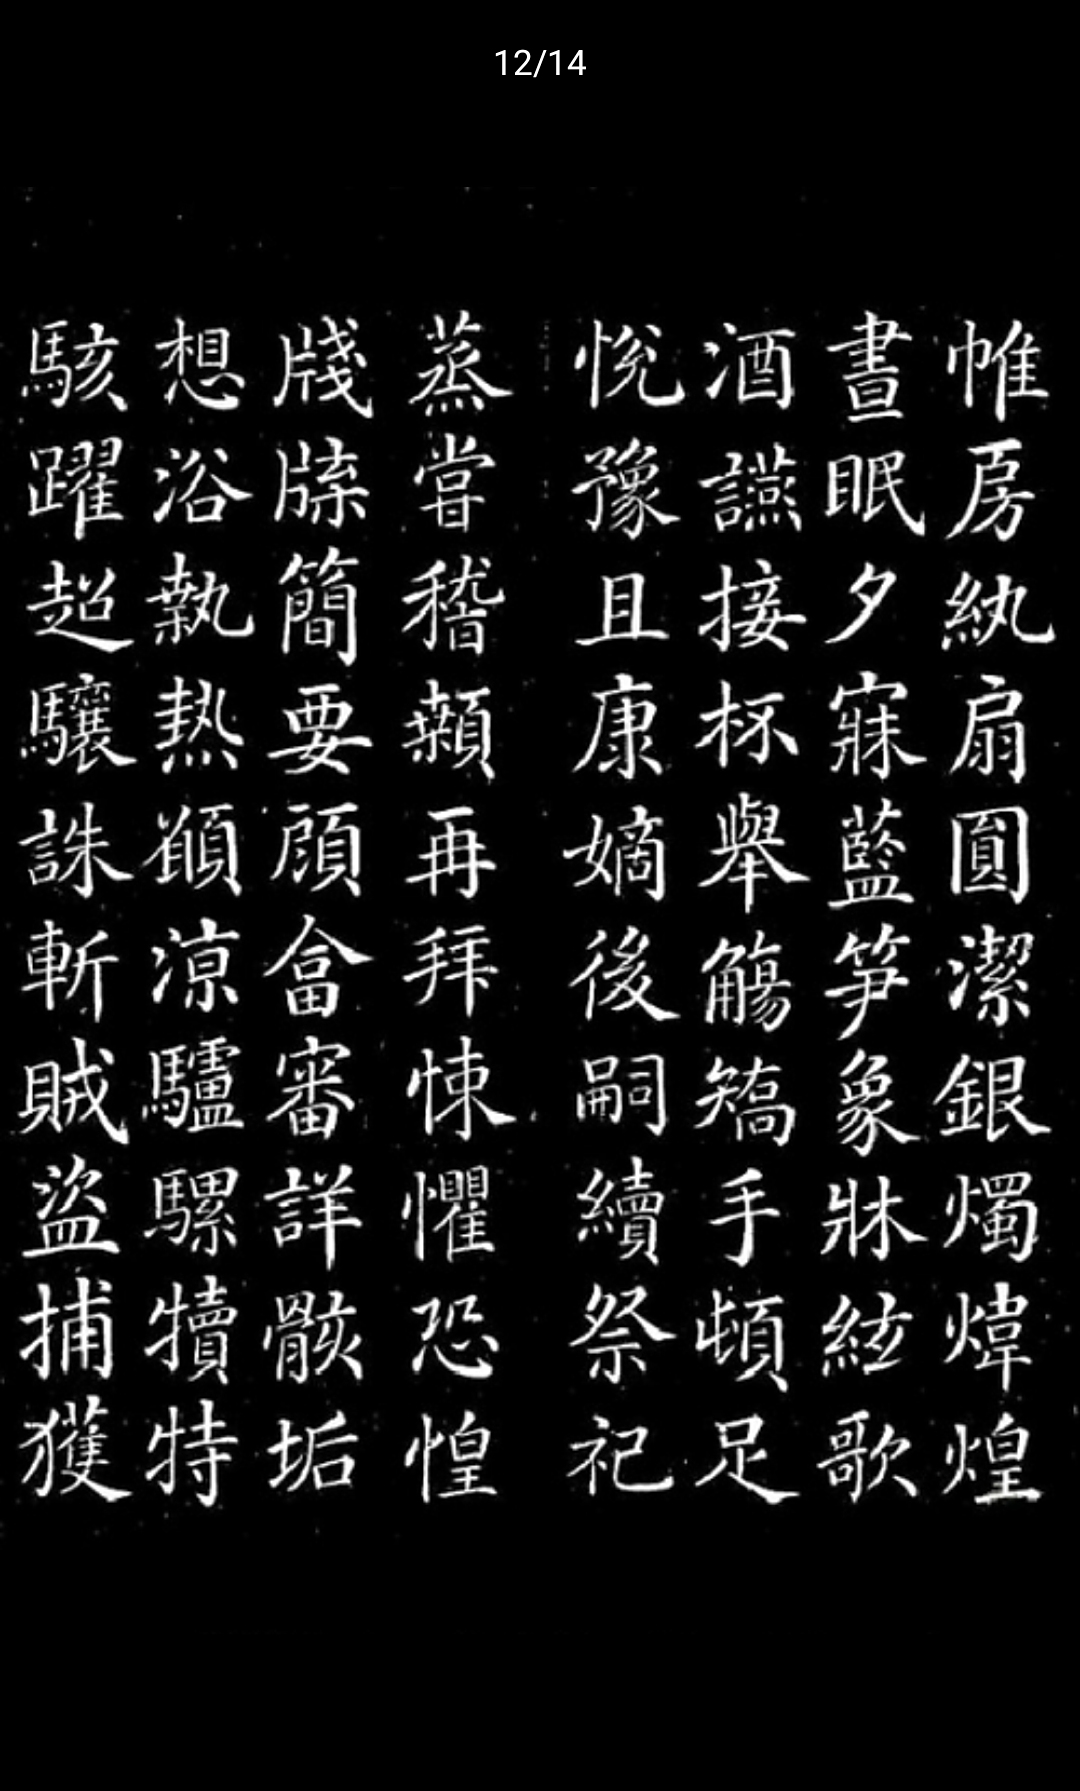 12/14
帷房紈扇圓潔銀燭煒煌
晝眠夕寐藍笋象牀絃歌
酒讌接杯舉觴矯手頓足
悅豫且康嫡後嗣續祭祀
蒸嘗稽顙再拜悚懼恐惶
牋牒簡要顧畣審詳骸垢
想浴執熱願涼驢騾犢特
駭躍超驤誅斬賊盜捕獲